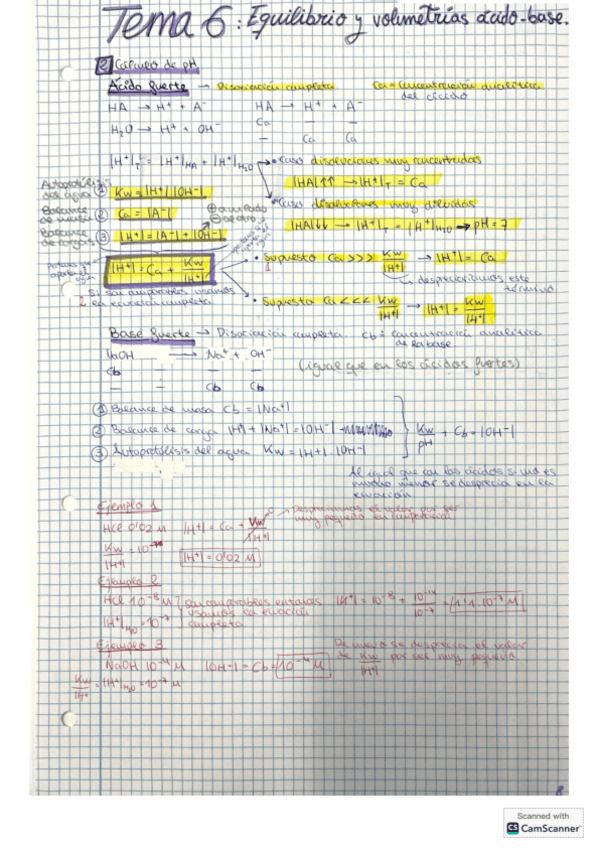 Tema 6: Equilibrio y volumetrías ácido-base.
2 Cálculo de pH
Ácido fuerte → Disociación completa Ca = Concentración analítica
del ácido
HA → H⁺ + A⁻ HA → H⁺ + A⁻
H₂O → H⁺ + OH⁻ Ca — —
— Ca Ca
|H⁺|T = |H⁺|HA + |H⁺|H₂O → • Caso disoluciones muy concentradas
|HA|↑↑ → |H⁺|T = Ca
Autoprotólisis
del agua ① Kw = |H⁺||OH⁻|
• Caso disoluciones muy diluidas
Balance
de masa ② Ca = |A⁻|
|HA|↓↓ → |H⁺|T = |H⁺|H₂O → pH = 7
Balance
de cargas ③ |H⁺| = |A⁻| + |OH⁻|
|H⁺| = Ca + Kw/|H⁺|
• Supuesto Ca >>> Kw/|H⁺| → |H⁺| = Ca
despreciamos este
término
Si son comparables usamos
la ecuación completa
• Supuesto Ca <<< Kw/|H⁺| → |H⁺| = Kw/|H⁺|
Base fuerte → Disociación completa Cb = concentración analítica
de la base
NaOH → Na⁺ + OH⁻
Cb — —
(igual que en los ácidos fuertes)
— Cb Cb
① Balance de masa Cb = |Na⁺|
② Balance de carga |H⁺| + |Na⁺| = |OH⁻|
Kw/pH + Cb = |OH⁻|
③ Autoprotólisis del agua Kw = |H⁺|·|OH⁻|
Al igual que con los ácidos si no es
mucho menor se desprecia en la
ecuación
Ejemplo 1
Despreciamos el valor por ser
muy pequeño en comparación
HCl 0'02 M |H⁺| = Ca + Kw/|H⁺|
Kw/|H⁺| = 10
|H⁺| = 0'02 M
Ejemplo 2
HCl 10⁻⁸ M son comparables entonces
usamos la ecuación
completa
|H⁺| = 10⁻⁸ + 10⁻¹⁴/10⁻⁷ = 1'1·10⁻⁷ M
|H⁺|H₂O = 10⁻⁷
Ejemplo 3
De nuevo se desprecia el valor
de Kw/|H⁺| por ser muy pequeño
NaOH 10⁻⁴ M |OH⁻| = Cb = 10⁻⁴ M
Kw/|H⁺| = |H⁺|H₂O = 10⁻⁷ M
8
Scanned with
CS CamScanner